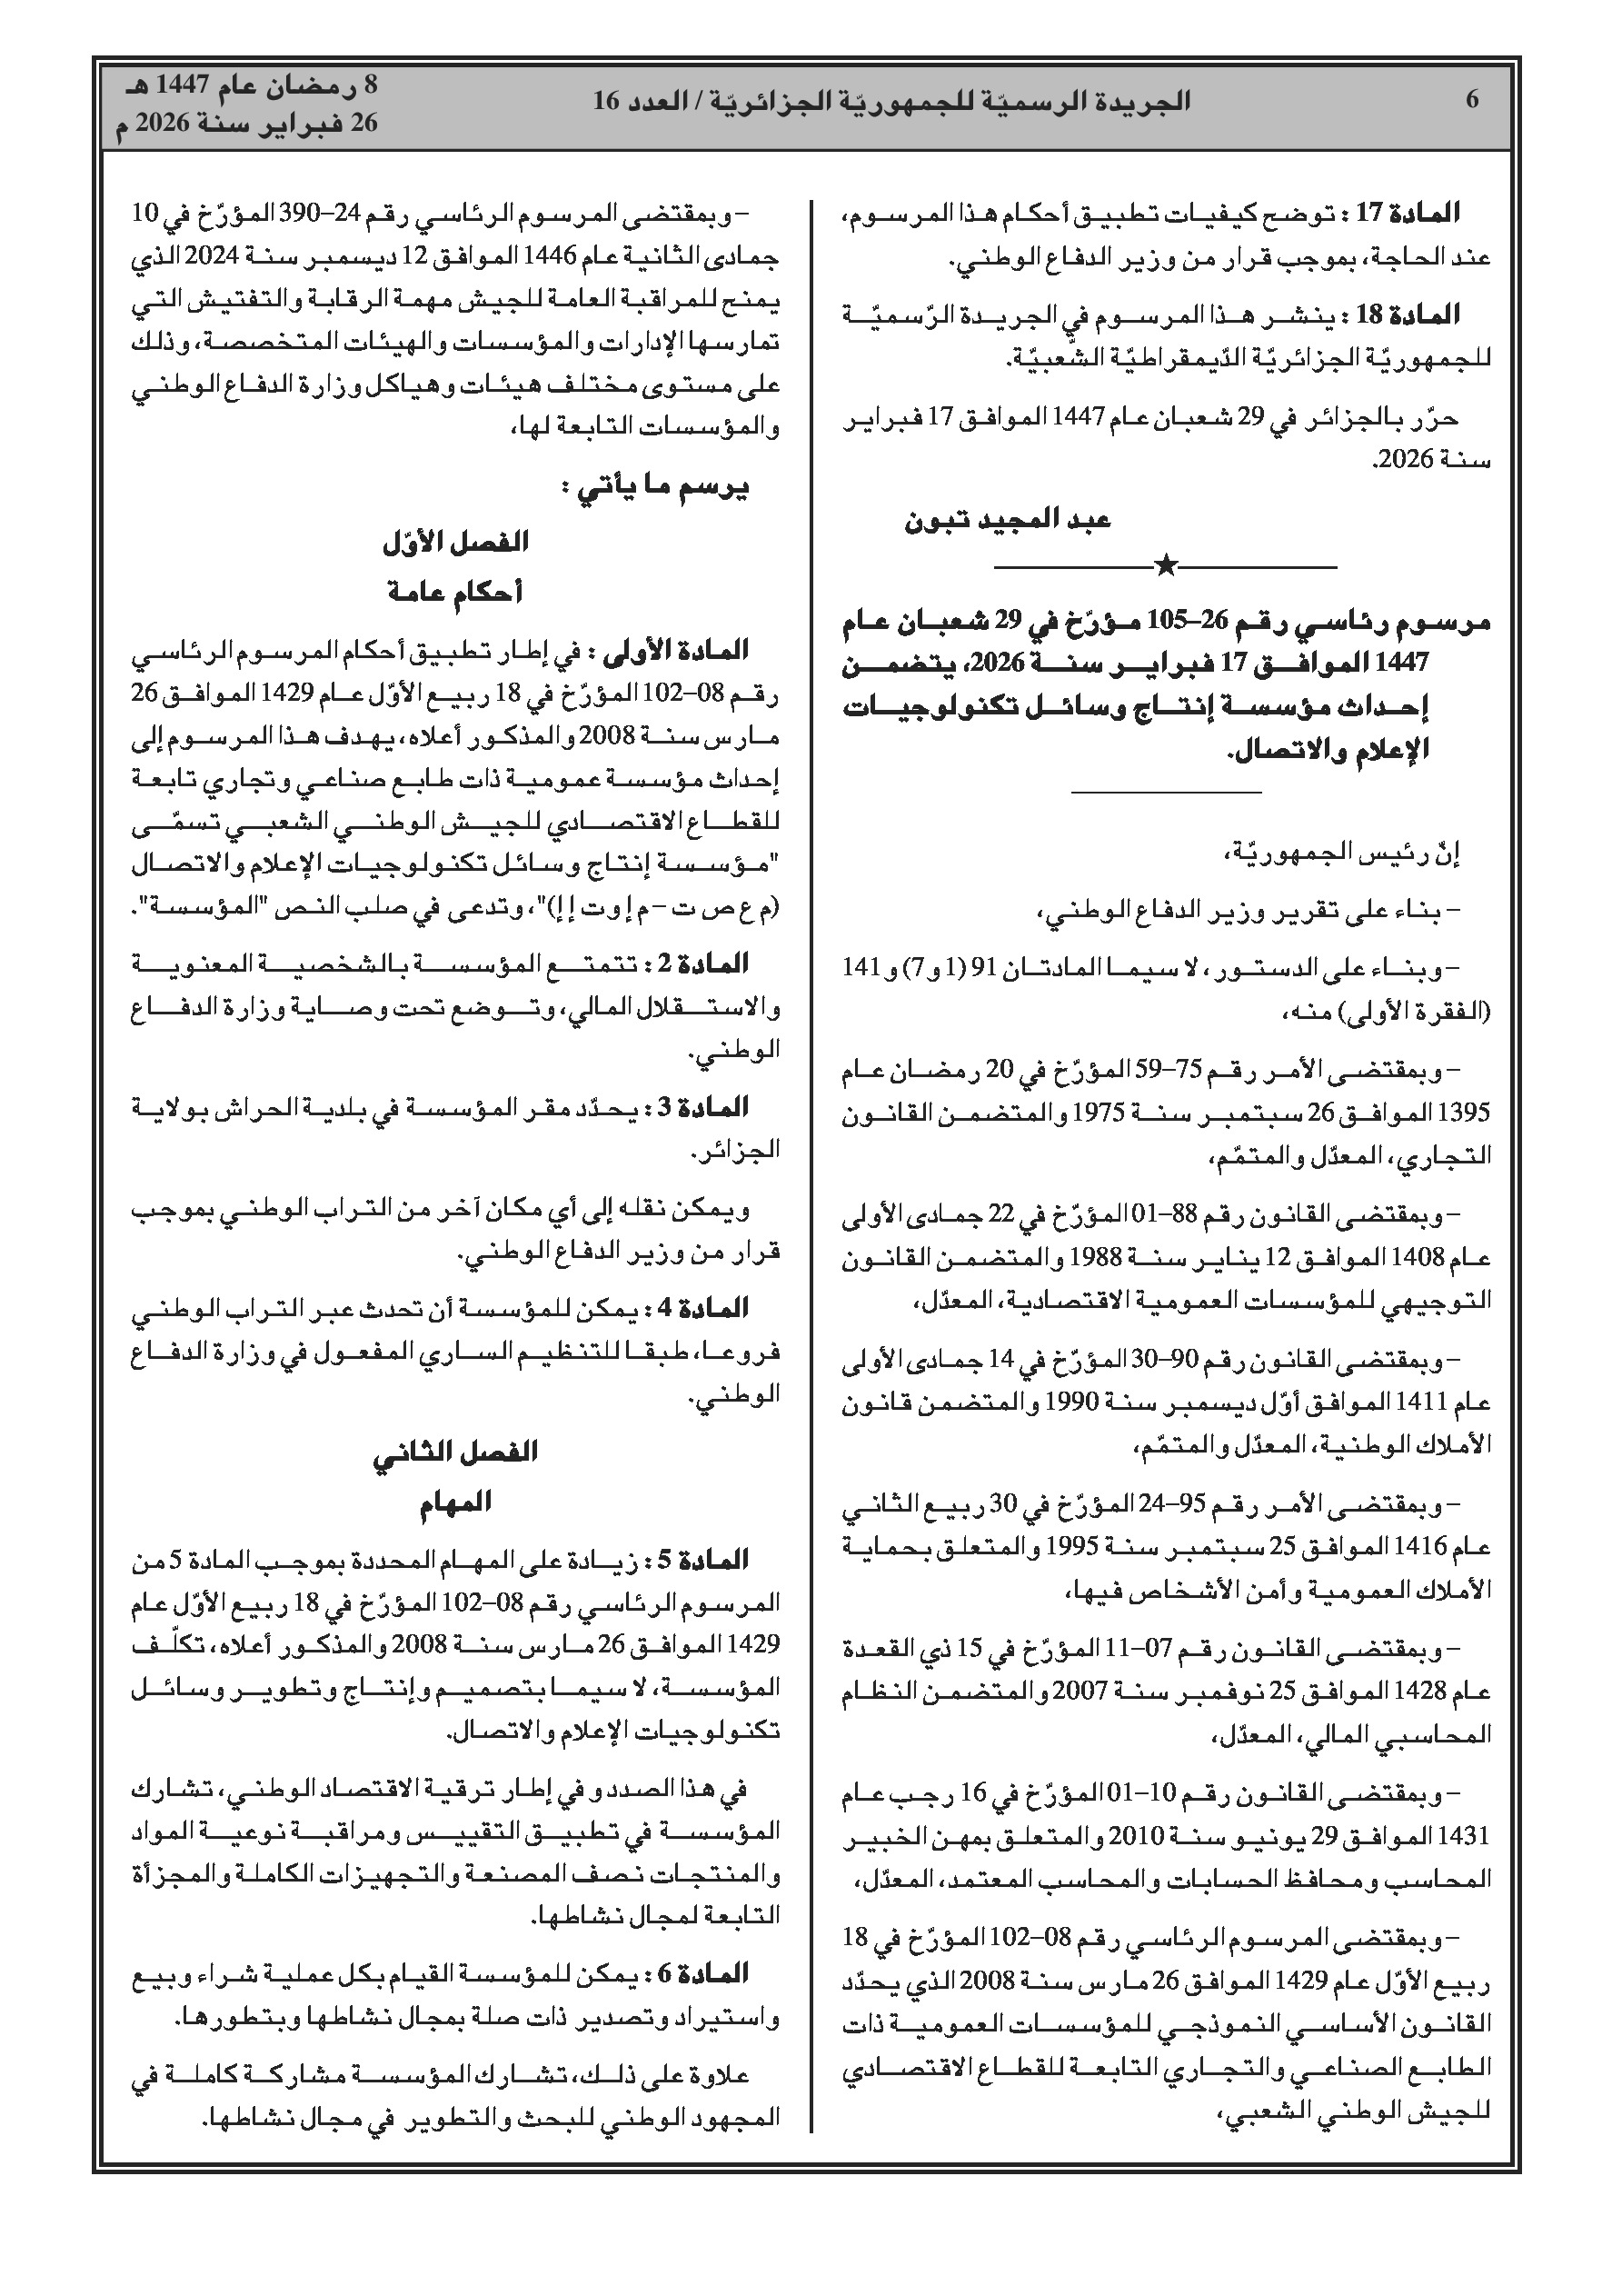 6
الجريدة الرسميّة للجمهوريّة الجزائريّة / العدد 16
8 رمضان عام 1447 هـ
26 فبراير سنة 2026 م
المادة 17 : توضح كيفيات تطبيق أحكام هذا المرسوم،
عند الحاجة، بموجب قرار من وزير الدفاع الوطني.
المادة 18 : ينشر هذا المرسوم في الجريدة الرّسميّة
للجمهوريّة الجزائريّة الدّيمقراطيّة الشّعبيّة.
حرّر بالجزائر في 29 شعبان عام 1447 الموافق 17 فبراير
سنة 2026.
عبد المجيد تبون
مرسوم رئاسي رقم 26–105 مؤرّخ في 29 شعبان عام
1447 الموافق 17 فبراير سنة 2026، يتضمن
إحداث مؤسسة إنتاج وسائل تكنولوجيات
الإعلام والاتصال.
إنّ رئيس الجمهوريّة،
– بناء على تقرير وزير الدفاع الوطني،
– وبناء على الدستور، لا سيما المادتان 91 (1 و7) و141
(الفقرة الأولى) منه،
– وبمقتضى الأمر رقم 75–59 المؤرّخ في 20 رمضان عام
1395 الموافق 26 سبتمبر سنة 1975 والمتضمن القانون
التجاري، المعدّل والمتمّم،
– وبمقتضى القانون رقم 88–01 المؤرّخ في 22 جمادى الأولى
عام 1408 الموافق 12 يناير سنة 1988 والمتضمن القانون
التوجيهي للمؤسسات العمومية الاقتصادية، المعدّل،
– وبمقتضى القانون رقم 90–30 المؤرّخ في 14 جمادى الأولى
عام 1411 الموافق أوّل ديسمبر سنة 1990 والمتضمن قانون
الأملاك الوطنية، المعدّل والمتمّم،
– وبمقتضى الأمر رقم 95–24 المؤرّخ في 30 ربيع الثاني
عام 1416 الموافق 25 سبتمبر سنة 1995 والمتعلق بحماية
الأملاك العمومية وأمن الأشخاص فيها،
– وبمقتضى القانون رقم 07–11 المؤرّخ في 15 ذي القعدة
عام 1428 الموافق 25 نوفمبر سنة 2007 والمتضمن النظام
المحاسبي المالي، المعدّل،
– وبمقتضى القانون رقم 10–01 المؤرّخ في 16 رجب عام
1431 الموافق 29 يونيو سنة 2010 والمتعلق بمهن الخبير
المحاسب ومحافظ الحسابات والمحاسب المعتمد، المعدّل،
– وبمقتضى المرسوم الرئاسي رقم 08–102 المؤرّخ في 18
ربيع الأوّل عام 1429 الموافق 26 مارس سنة 2008 الذي يحدّد
القانون الأساسي النموذجي للمؤسسات العمومية ذات
الطابع الصناعي والتجاري التابعة للقطاع الاقتصادي
للجيش الوطني الشعبي،
– وبمقتضى المرسوم الرئاسي رقم 24–390 المؤرّخ في 10
جمادى الثانية عام 1446 الموافق 12 ديسمبر سنة 2024 الذي
يمنح للمراقبة العامة للجيش مهمة الرقابة والتفتيش التي
تمارسها الإدارات والمؤسسات والهيئات المتخصصة، وذلك
على مستوى مختلف هيئات وهياكل وزارة الدفاع الوطني
والمؤسسات التابعة لها،
يرسم ما يأتي :
الفصل الأوّل
أحكام عامة
المادة الأولى : في إطار تطبيق أحكام المرسوم الرئاسي
رقم 08–102 المؤرّخ في 18 ربيع الأوّل عام 1429 الموافق 26
مارس سنة 2008 والمذكور أعلاه، يهدف هذا المرسوم إلى
إحداث مؤسسة عمومية ذات طابع صناعي وتجاري تابعة
للقطاع الاقتصادي للجيش الوطني الشعبي تسمّى
"مؤسسة إنتاج وسائل تكنولوجيات الإعلام والاتصال
(م ع ص ت – م إ و ت إ إ)"، وتدعى في صلب النص "المؤسسة".
المادة 2 : تتمتع المؤسسة بالشخصية المعنوية
والاستقلال المالي، وتوضع تحت وصاية وزارة الدفاع
الوطني.
المادة 3 : يحدّد مقر المؤسسة في بلدية الحراش بولاية
الجزائر.
ويمكن نقله إلى أي مكان آخر من التراب الوطني بموجب
قرار من وزير الدفاع الوطني.
المادة 4 : يمكن للمؤسسة أن تحدث عبر التراب الوطني
فروعا، طبقا للتنظيم الساري المفعول في وزارة الدفاع
الوطني.
الفصل الثاني
المهام
المادة 5 : زيادة على المهام المحددة بموجب المادة 5 من
المرسوم الرئاسي رقم 08–102 المؤرّخ في 18 ربيع الأوّل عام
1429 الموافق 26 مارس سنة 2008 والمذكور أعلاه، تكلّف
المؤسسة، لا سيما بتصميم وإنتاج وتطوير وسائل
تكنولوجيات الإعلام والاتصال.
في هذا الصدد و في إطار ترقية الاقتصاد الوطني، تشارك
المؤسسة في تطبيق التقييس ومراقبة نوعية المواد
والمنتجات نصف المصنعة والتجهيزات الكاملة والمجزأة
التابعة لمجال نشاطها.
المادة 6 : يمكن للمؤسسة القيام بكل عملية شراء وبيع
واستيراد وتصدير ذات صلة بمجال نشاطها وبتطورها.
علاوة على ذلك، تشارك المؤسسة مشاركة كاملة في
المجهود الوطني للبحث والتطوير في مجال نشاطها.